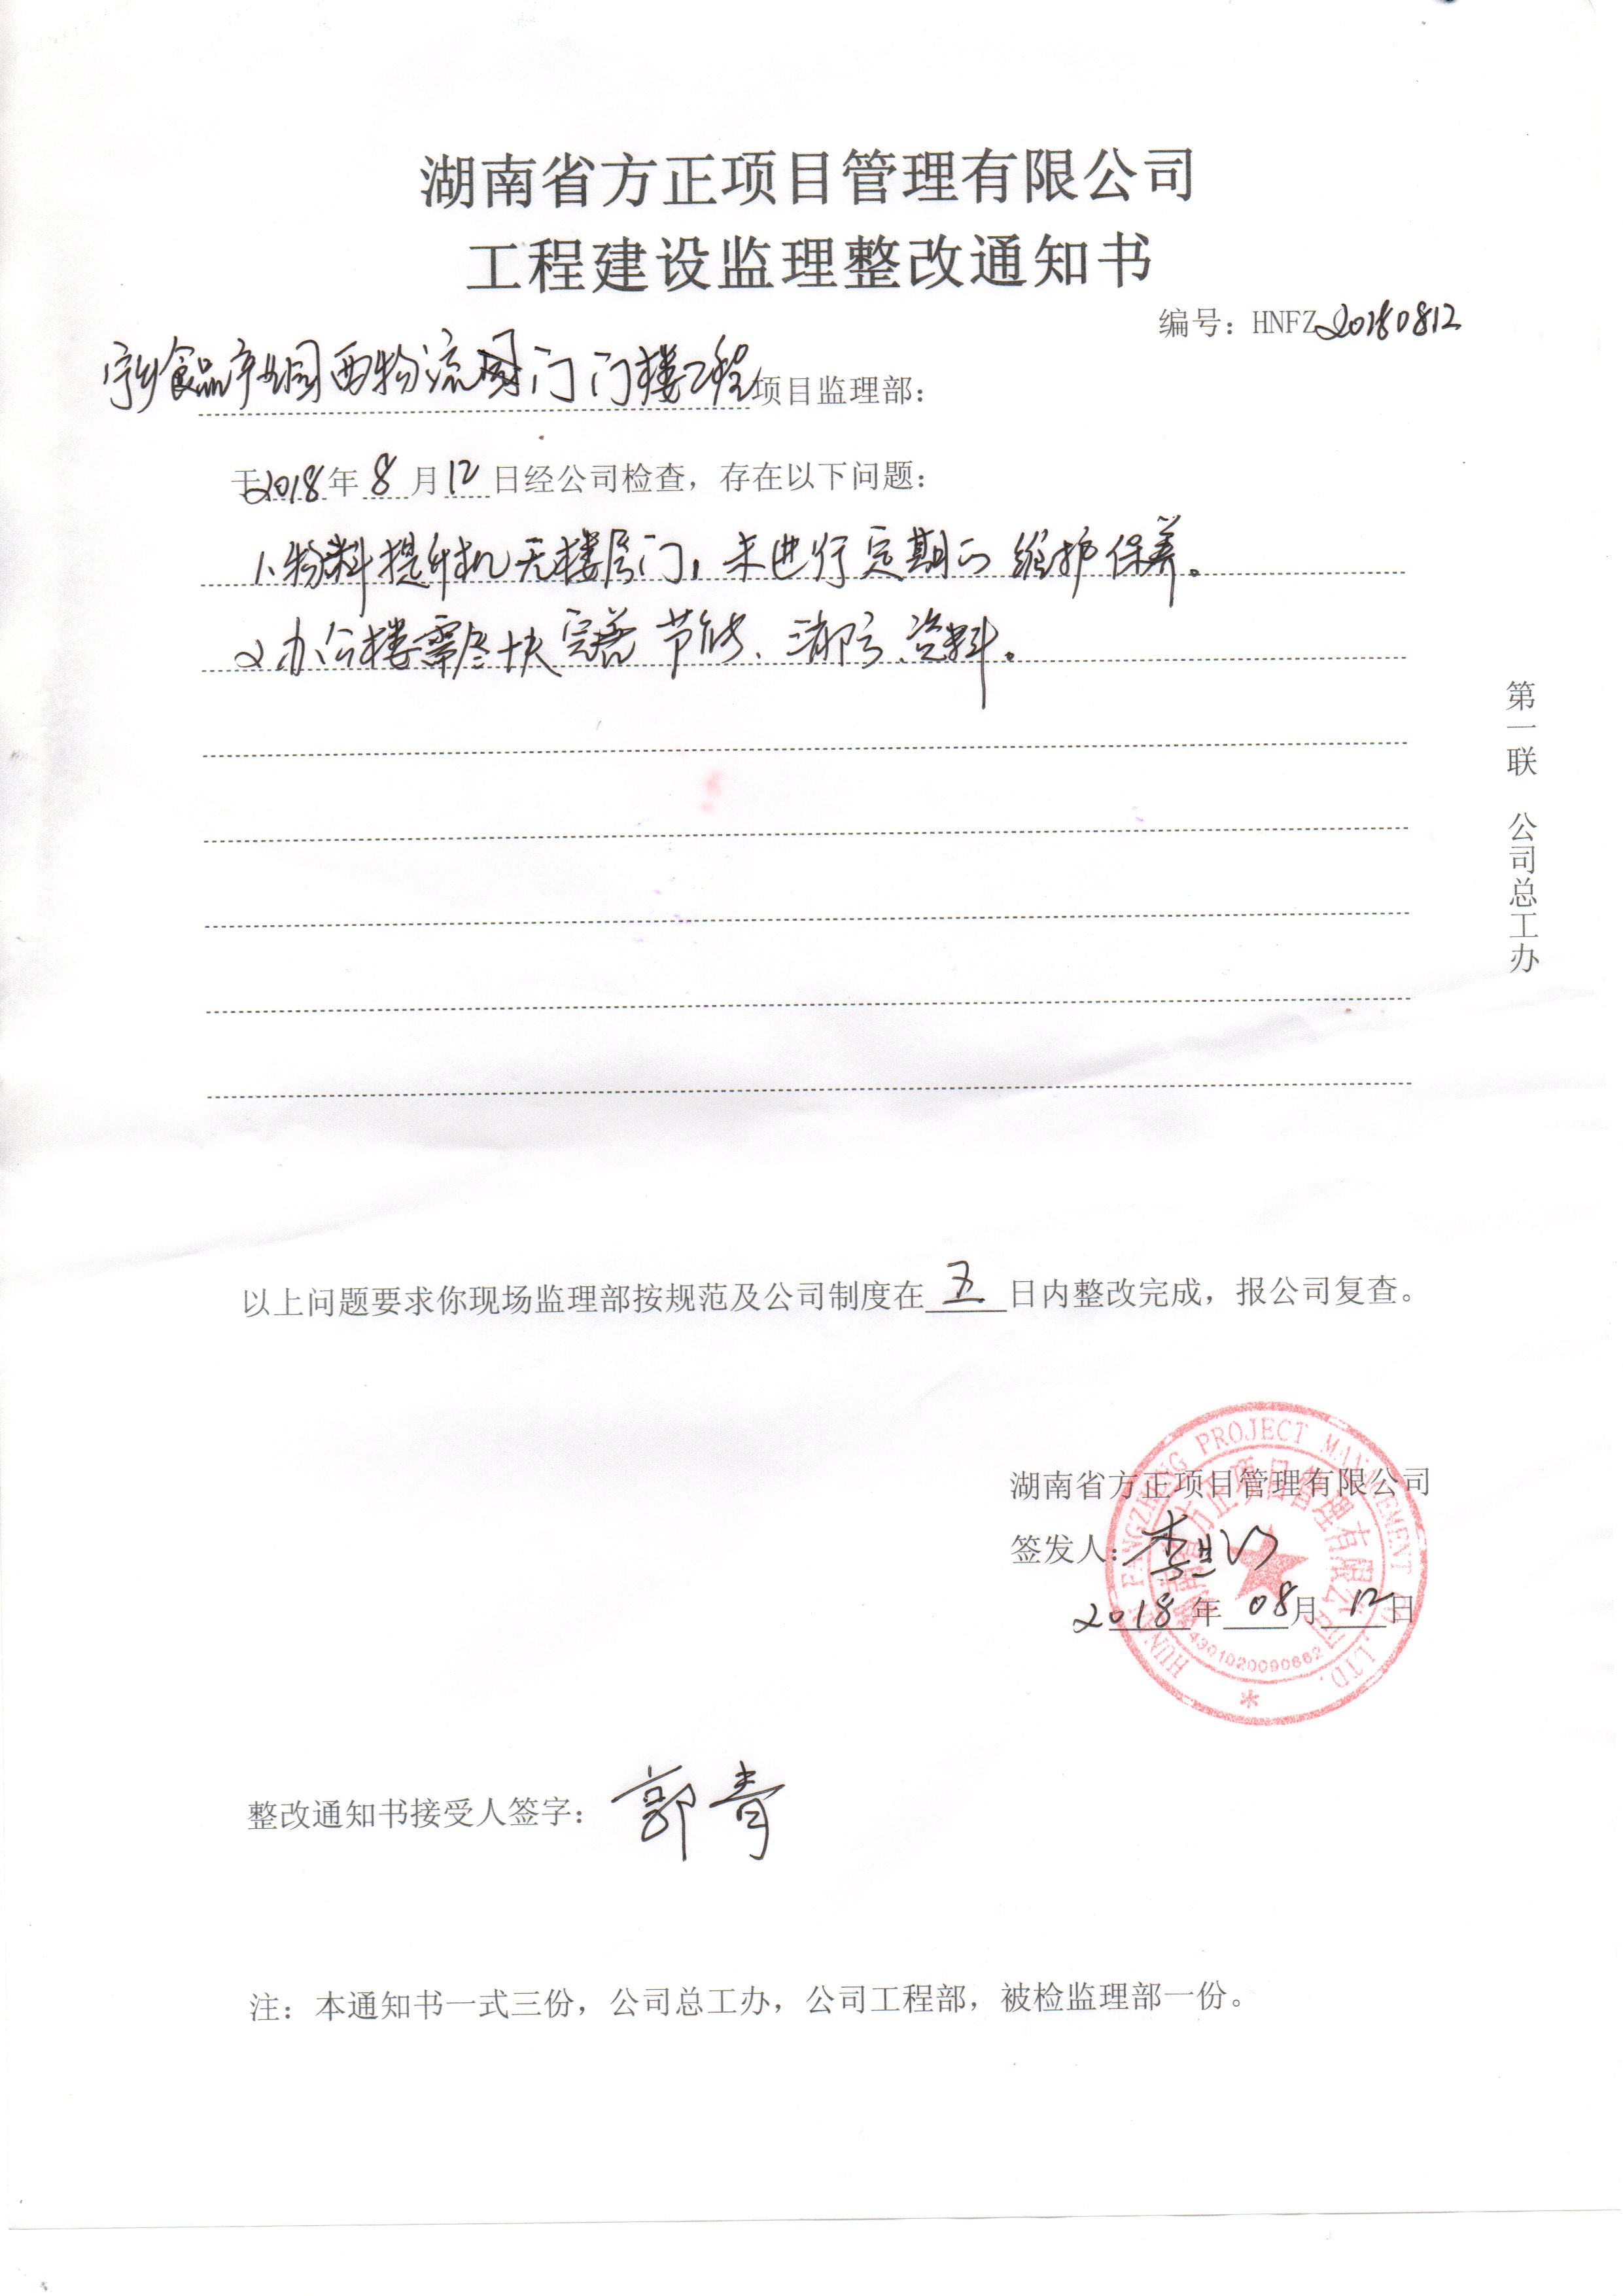 湖南省方正项目管理有限公司
工程建设监理整改通知书
编号：HNFZ20180812
宁乡食品产业园西物流园门门楼工程项目监理部：
于2018年8月12日经公司检查，存在以下问题：
1、物料提升机无楼层门，未进行定期的维护保养。
2、办公楼需尽快完善节能、消防、资料。
第一联 公司总工办
以上问题要求你现场监理部按规范及公司制度在五日内整改完成，报公司复查。
湖南省方正项目管理有限公司
签发人：李
2018年08月12日
HUNAN FANGZHENG PROJECT MANAGEMENT CO.,LTD.
湖南省方正项目管理有限公司
4301020090662
整改通知书接受人签字：郭青
注：本通知书一式三份，公司总工办，公司工程部，被检监理部一份。